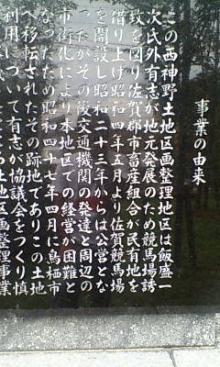 事業の由来
この西神野土地区画整理地区は飯盛一
次氏外有志が地元発展のため競馬場誘
致を図り佐賀郡市畜産組合が民有地を
借り上げ昭和四年五月より佐賀競馬場
を開設し昭和二十三年からは公営とな
ったがその後交通機関の発達と周辺の
市街化により本地区での経営が困難と
なったため昭和四十七年四月に鳥栖市
へ移転されたその跡地でありこの土地
利用について有志が協議会をつくり慎